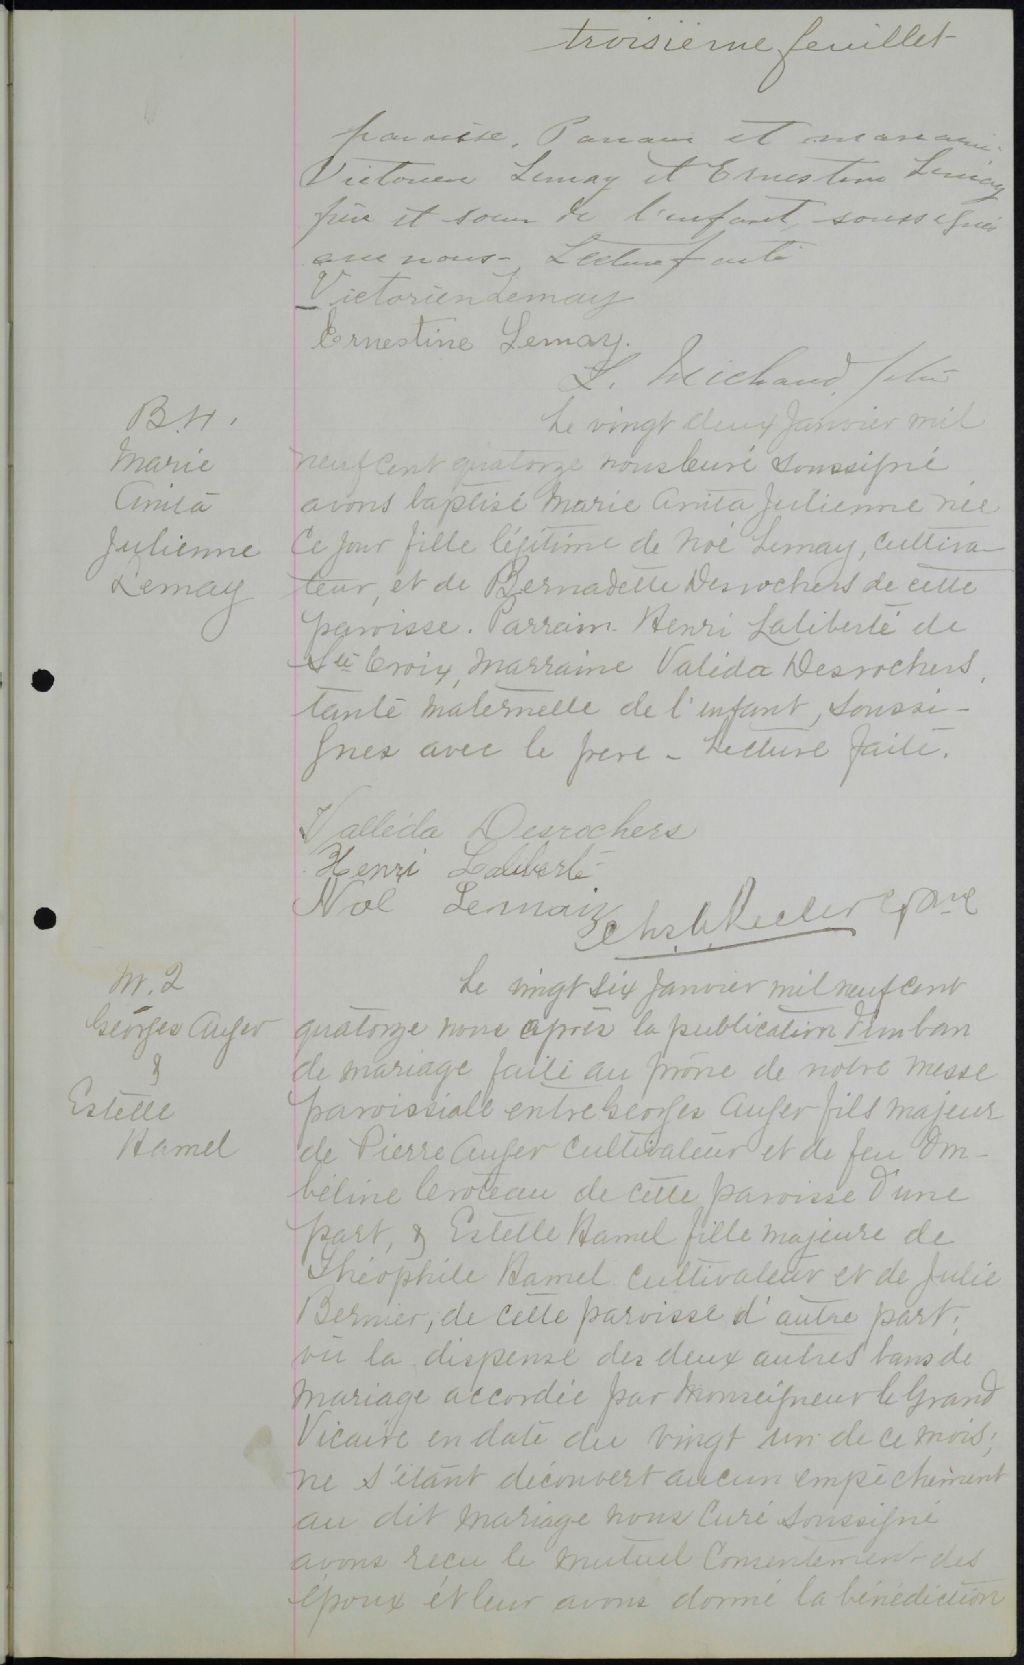 troisième feuillet
paroisse. Parrain et marraine
Victorien Lemay et Ernestine Lemay
frère et soeur de l'enfant, soussignés
avec nous - Lecture faite
Victorien Lemay
Ernestine Lemay.
L. Michaud ptre
B. 4.
Marie
Anita
Julienne
Lemay
Le vingt deux Janvier mil
neuf cent quatorze nous Curé soussigné
avons baptisé Marie Anita Julienne née
ce jour fille légitime de Noé Lemay, cultiva-
teur, et de Bernadette Desrochers de cette
paroisse. Parrain Henri Laliberté de
Ste Croix, Marraine Valéda Desrochers,
tante maternelle de l'enfant, soussi-
gnés avec le père - Lecture faite.
Valléda Desrochers
Henri Laliberté
Noé Lemay
Ptre
M. 2
Georges Auger
&
Estelle
Hamel
Le vingt six Janvier mil neuf cent
quatorze nous après la publication d'un ban
de mariage faite au prône de notre messe
paroissiale entre Georges Auger fils majeur
de Pierre Auger cultivateur et de feu Om-
béline Croteau de cette paroisse d'une
part, & Estelle Hamel fille majeure de
Théophile Hamel cultivateur et de Julie
Bernier, de cette paroisse d'autre part;
vu la dispense des deux autres bans de
mariage accordée par Monseigneur le Grand
Vicaire en date du vingt un de ce mois;
ne s'étant découvert aucun empêchement
au dit mariage nous Curé soussigné
avons reçu le mutuel Consentement des
époux et leur avons donné la bénédiction